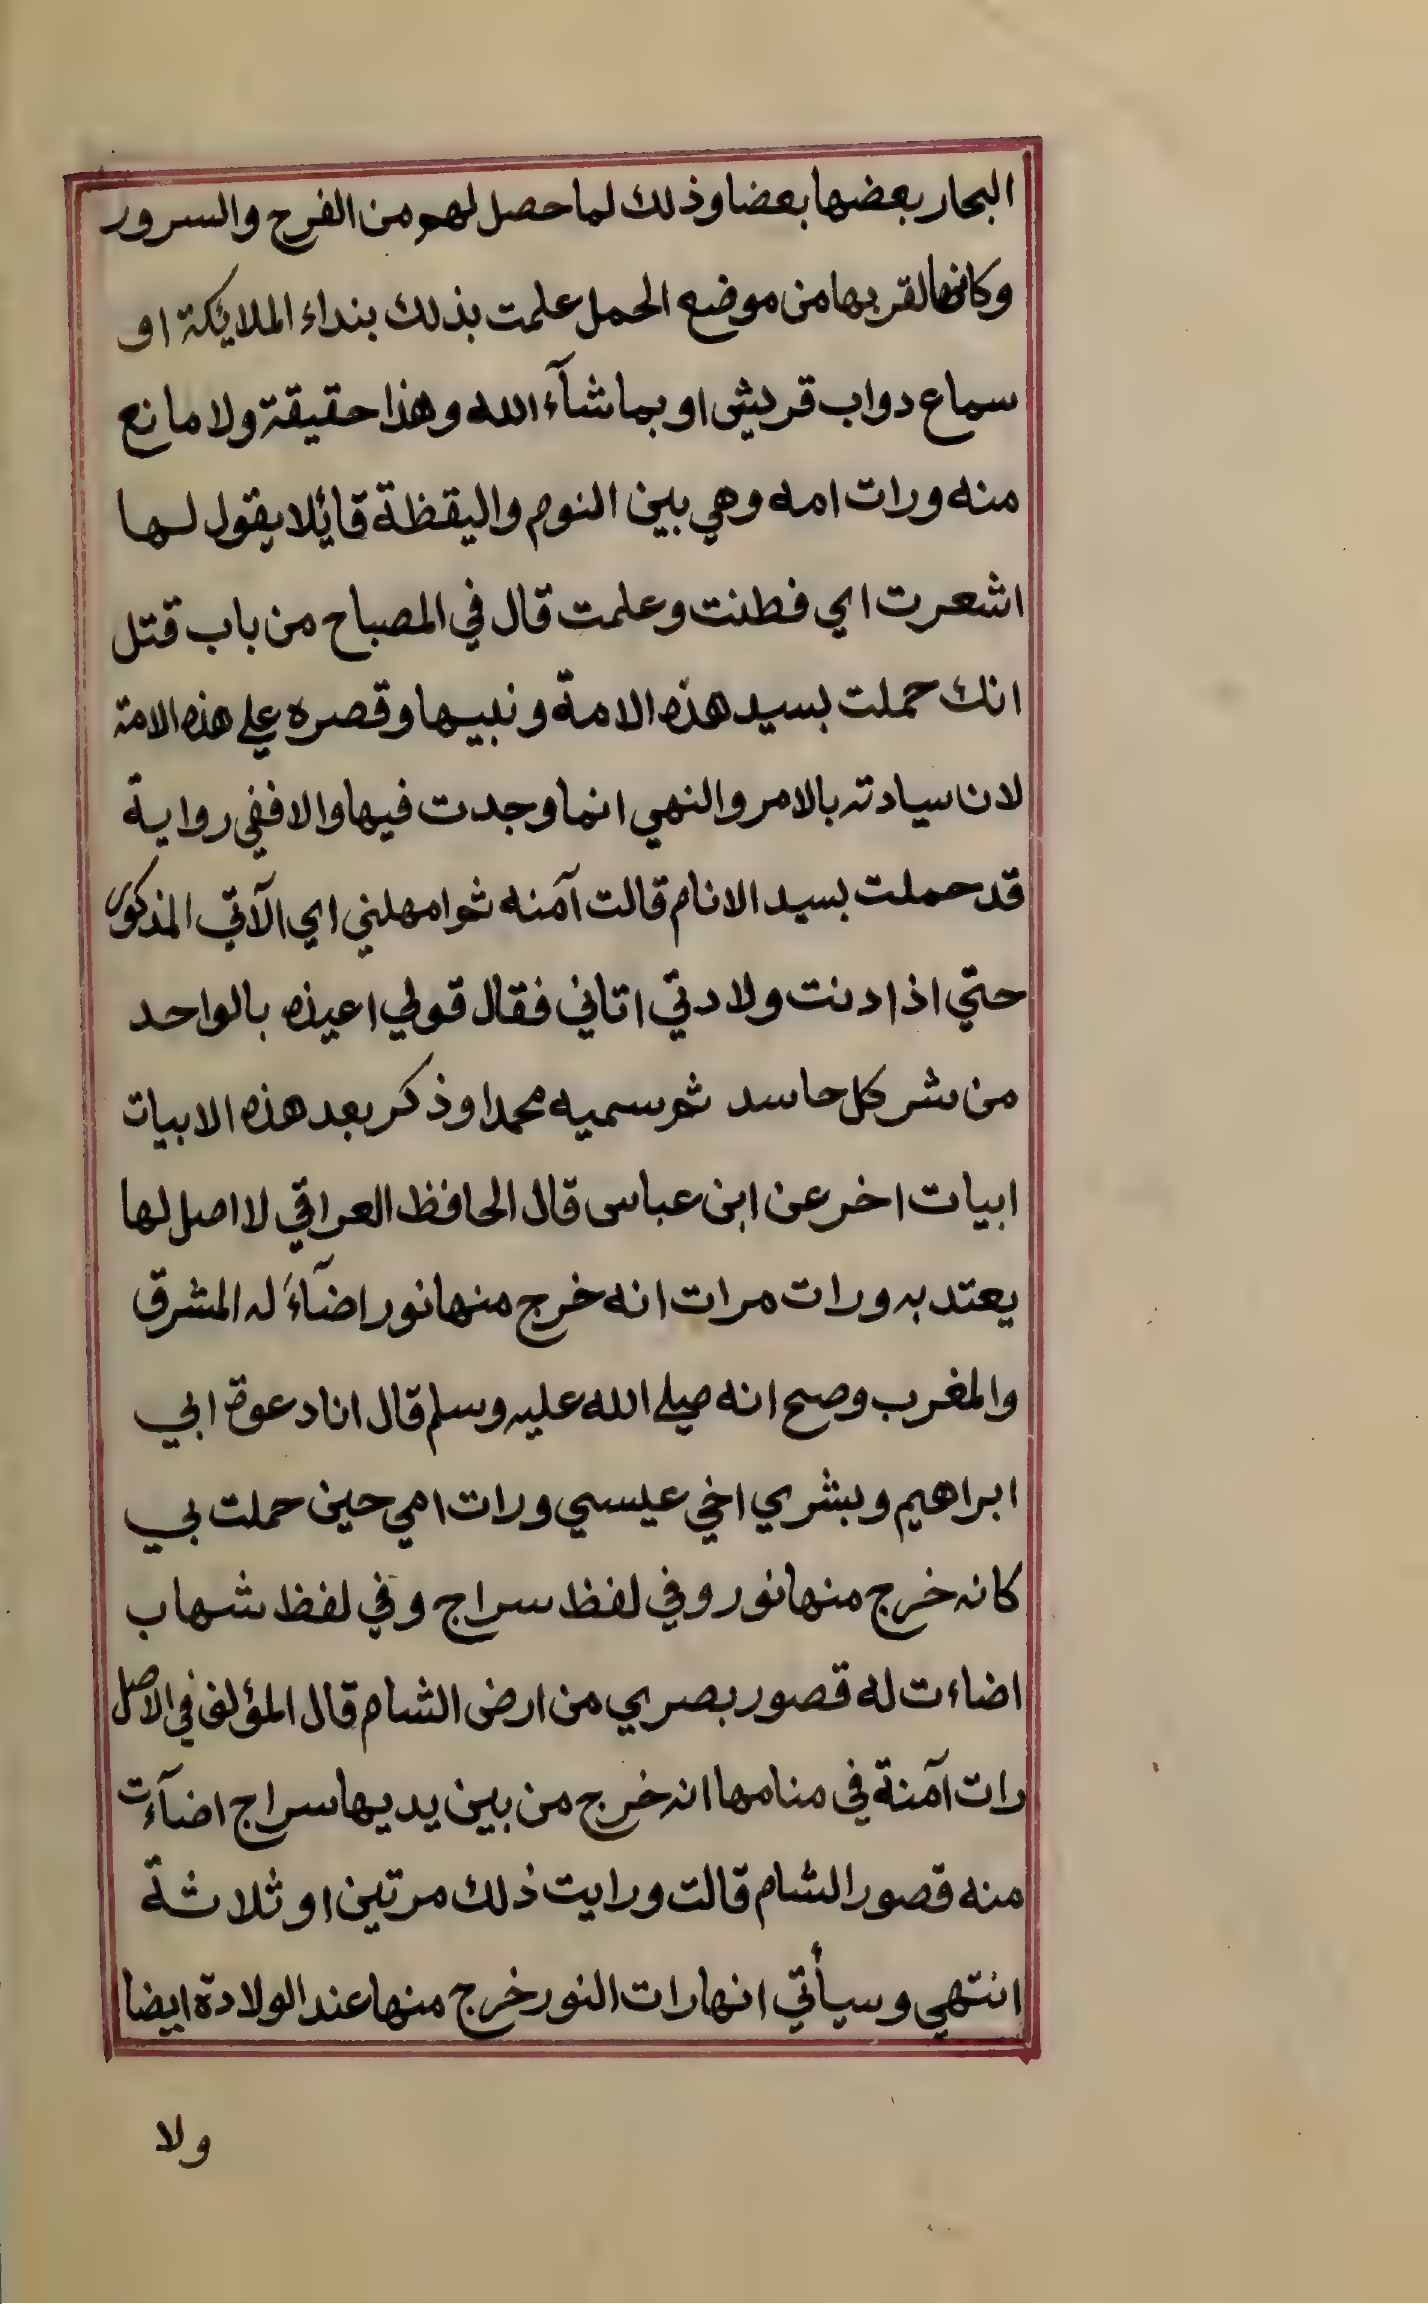 البحار بعضها بعضا وذلك لما حصل لهم من الفرح والسرور
وكانها لقربها من موضع الحمل علمت بذلك بنداء الملايكة او
سماع دواب قريش او بما شآء الله وهذا حقيقة ولا مانع
منه ورات امه وهي بين النوم واليقظة قائلا يقول لها
اشعرت اي فطنت وعلمت قال في المصباح من باب قتل
انك حملت بسيد هذه الامة ونبيها وقصره علي هذه الامة
لان سيادته بالامر والنهي انما وجدت فيها والا ففي رواية
قد حملت بسيد الانام قالت آمنه ثم امهلني اي الآتي المذكور
حتي اذا دنت ولادتي اتاني فقال قولي اعيذه بالواحد
من شر كل حاسد ثم سميه محمدا وذكر بعد هذه الابيات
ابيات اخر عن ابن عباس قال الحافظ العراقي لا اصل لها
يعتد به ورات مرات انه خرج منها نور اضآءَ له المشرق
والمغرب وصح انه صلي الله عليه وسلم قال انا دعوة ابي
ابراهيم وبشري اخي عيسي ورات امي حين حملت بي
كانه خرج منها نور وفي لفظ سراج وفي لفظ شهاب
اضاءت له قصور بصري من ارض الشام قال المؤلف في الاصل
رات آمنة في منامها انه خرج من بين يديها سراج اضآءت
منه قصور الشام قالت ورايت ذلك مرتين او ثلاثة
انتهي وسيأتي انها رات النور خرج منها عند الولادة ايضا
ولا